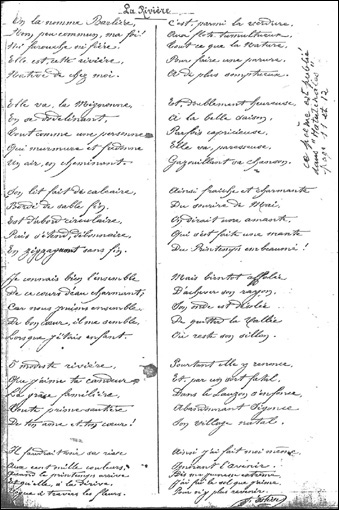 La Rivière
On la nomme Barlière,
Nom peu commun, ma foi!
Ni farouche ni fière,
Elle est, cette rivière
Native de chez moi.
Elle va, la Mignonne,
En se dodelinant,
Tout comme une personne
Qui murmure et fredonne
Un air, en cheminant.
Son lit fait de calcaire,
Bordé de sable fin,
Est d'abord circulaire,
Puis s'étend, débonnaire,
En zigzagant sans fin.
Je connais bien l'ensemble
De ce cours d'eau charmant,
Car nous jouions ensemble
De bon cœur, il me semble,
Lorsque j'étais enfant.
O modeste rivière,
Que j'aime ta candeur
La grâce familière,
Toute primesautière
De ton âme et ton cœur!
Il faudrait voir sa rive
Aux cent mille couleurs
Quand le printemps arrive
Et qu'elle, à la dérive
Vogue à travers les fleurs.
C'est, parmi la verdure,
Aux flots tumultueux
Tout ce que la Nature,
Pour faire une parure,
A de plus somptueux.
Et, doublement heureuse,
A la belle saison,
Parfois capricieuse,
Elle va, paresseuse,
Gazouillant sa chanson.
Ainsi fraîche et charmante
Du sourire de Mai,
On dirait une amante
Qui s'est faite une mante
Du Printemps embaumé!
Mais bientôt affolée
D'achever son rayon,
Son onde est désolée
De quitter la Vallée
Où reste son sillon.
Pourtant elle y renonce
Et, par un sort fatal,
Dans le Lauzon s'enfonce,
Abandonnant
Son village natal.
Ainsi j'ai fait moi-même
Ignorant l'avenir.
J'ai fui le sol que j'aime
Pour n'y plus revenir.
ce poème est publié
dans
pages 11 et 12